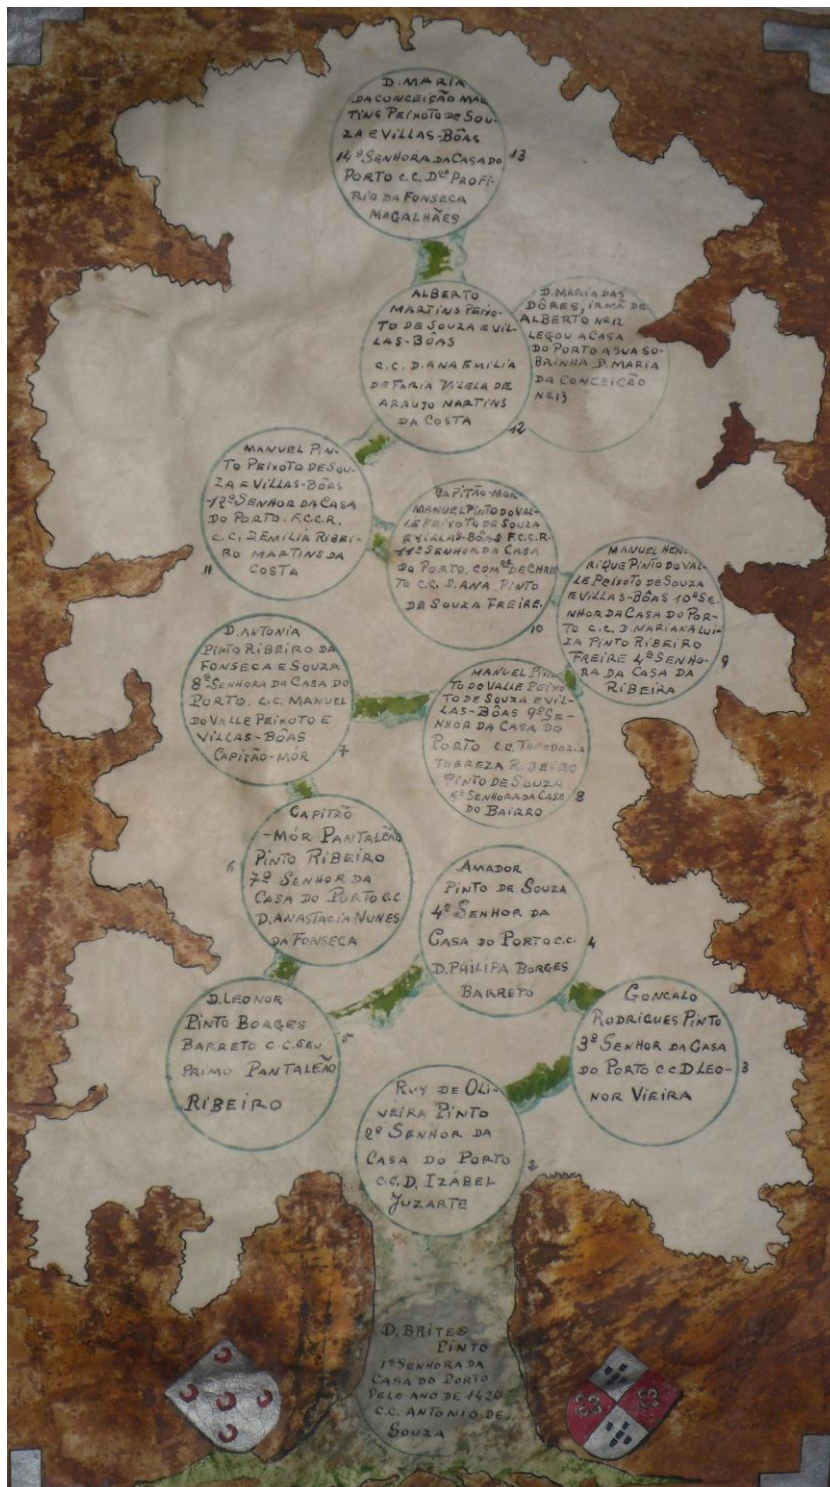 D. MARIA
DA CONCEIÇÃO MAR
TINS PEIXOTO DE SOU-
ZA E VILLAS-BÔAS
14ª SENHORA DA CASA DO
PORTO C.C. D^or PROFI-
RIO DA FONSECA
MAGALHÃES
13
ALBERTO
MARTINS PEIXO-
TO DE SOUZA E VIL-
LAS-BÔAS
C.C. D. ANA EMILIA
DE FARIA VILELA DE
ARAUJO MARTINS
DA COSTA
12
D. MARIA DAS
DÔRES, IRMÃ DE
ALBERTO Nº 12
LEGOU A CASA
DO PORTO A SUA SO-
BRINHA D. MARIA
DA CONCEIÇÃO
Nº 13
MANUEL PIN-
TO PEIXOTO DE SOU-
ZA E VILLAS-BÔAS
12º SENHOR DA CASA
DO PORTO. F.C.C.R.
C.C. D. EMILIA RIBEI-
RO MARTINS DA
COSTA
11
CAPITÃO-MOR
MANUEL PINTO DO VAL-
LE PEIXOTO DE SOUZA
E VILLAS-BÔAS F.C.C.R.
11º SENHOR DA CASA
DO PORTO, COM^or DE CHRIS
TO C.C. D. ANA PINTO
DE SOUZA FREIRE.
10
MANUEL HEN-
RIQUE PINTO DO VAL-
LE PEIXOTO DE SOUZA
E VILLAS-BÔAS 10º SE-
NHOR DA CASA DO POR-
TO C.C. D MARIANA LUI-
ZA PINTO RIBEIRO
FREIRE 4ª SENHO-
RA DA CASA DA
RIBEIRA
9
D. ANTONIA
PINTO RIBEIRO DA
FONSECA E SOUZA
8ª SENHORA DA CASA DO
PORTO. C.C. MANUEL
DO VALLE PEIXOTO E
VILLAS-BÔAS
CAPITÃO-MÓR
7
MANUEL PIN-
TO DO VALLE PEIXO
TO DE SOUZA E VIL-
LAS-BÔAS 9º SE-
NHOR DA CASA DO
PORTO C.C. THEODOZIA
THEREZA RIBEIRO
PINTO DE SOUZA
SENHORA DA CASA
DO BAIRRO
8
CAPITÃO
-MÓR PANTALEÃO
PINTO RIBEIRO
7º SENHOR DA
CASA DO PORTO C.C
D. ANASTACIA NUNES
DA FONSECA
6
AMADOR
PINTO DE SOUZA
4º SENHOR DA
CASA DO PORTO C.C.
D. PHILIPA BORGES
BARRETO
4
D. LEONOR
PINTO BORGES
BARRETO C.C. SEU
PRIMO PANTALEÃO
RIBEIRO
5
GONCALO
RODRIGUES PINTO
3º SENHOR DA CASA
DO PORTO C.C D LEO-
NOR VIEIRA
3
RUY DE OLI-
VEIRA PINTO
2º SENHOR DA
CASA DO PORTO
C.C. D. IZÁBEL
JUZARTE
2
D. BRITES
PINTO
1ª SENHORA DA
CASA DO PORTO
PELO ANO DE 1420
C.C. ANTONIO DE
SOUZA